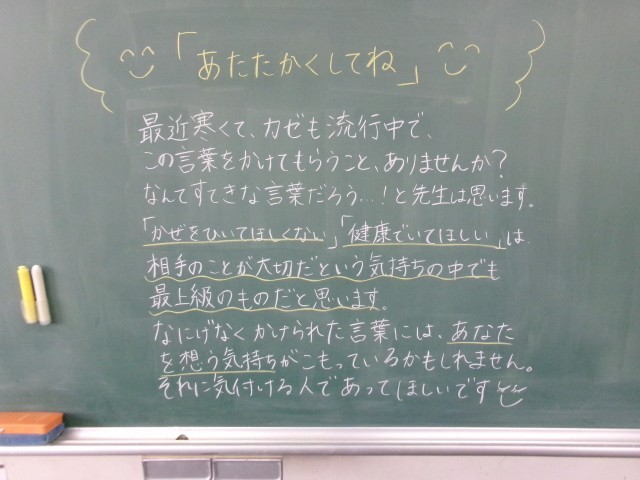 「あたたかくしてね」
最近寒くて、カゼも流行中で、
この言葉をかけてもらうこと、ありませんか?
なんてすてきな言葉だろう…!と先生は思います。
「かぜをひいてほしくない」「健康でいてほしい」は
相手のことが大切だという気持ちの中でも
最上級のものだと思います。
なにげなくかけられた言葉には、あなた
を想う気持ちがこもっているかもしれません。
それに気付ける人であってほしいです